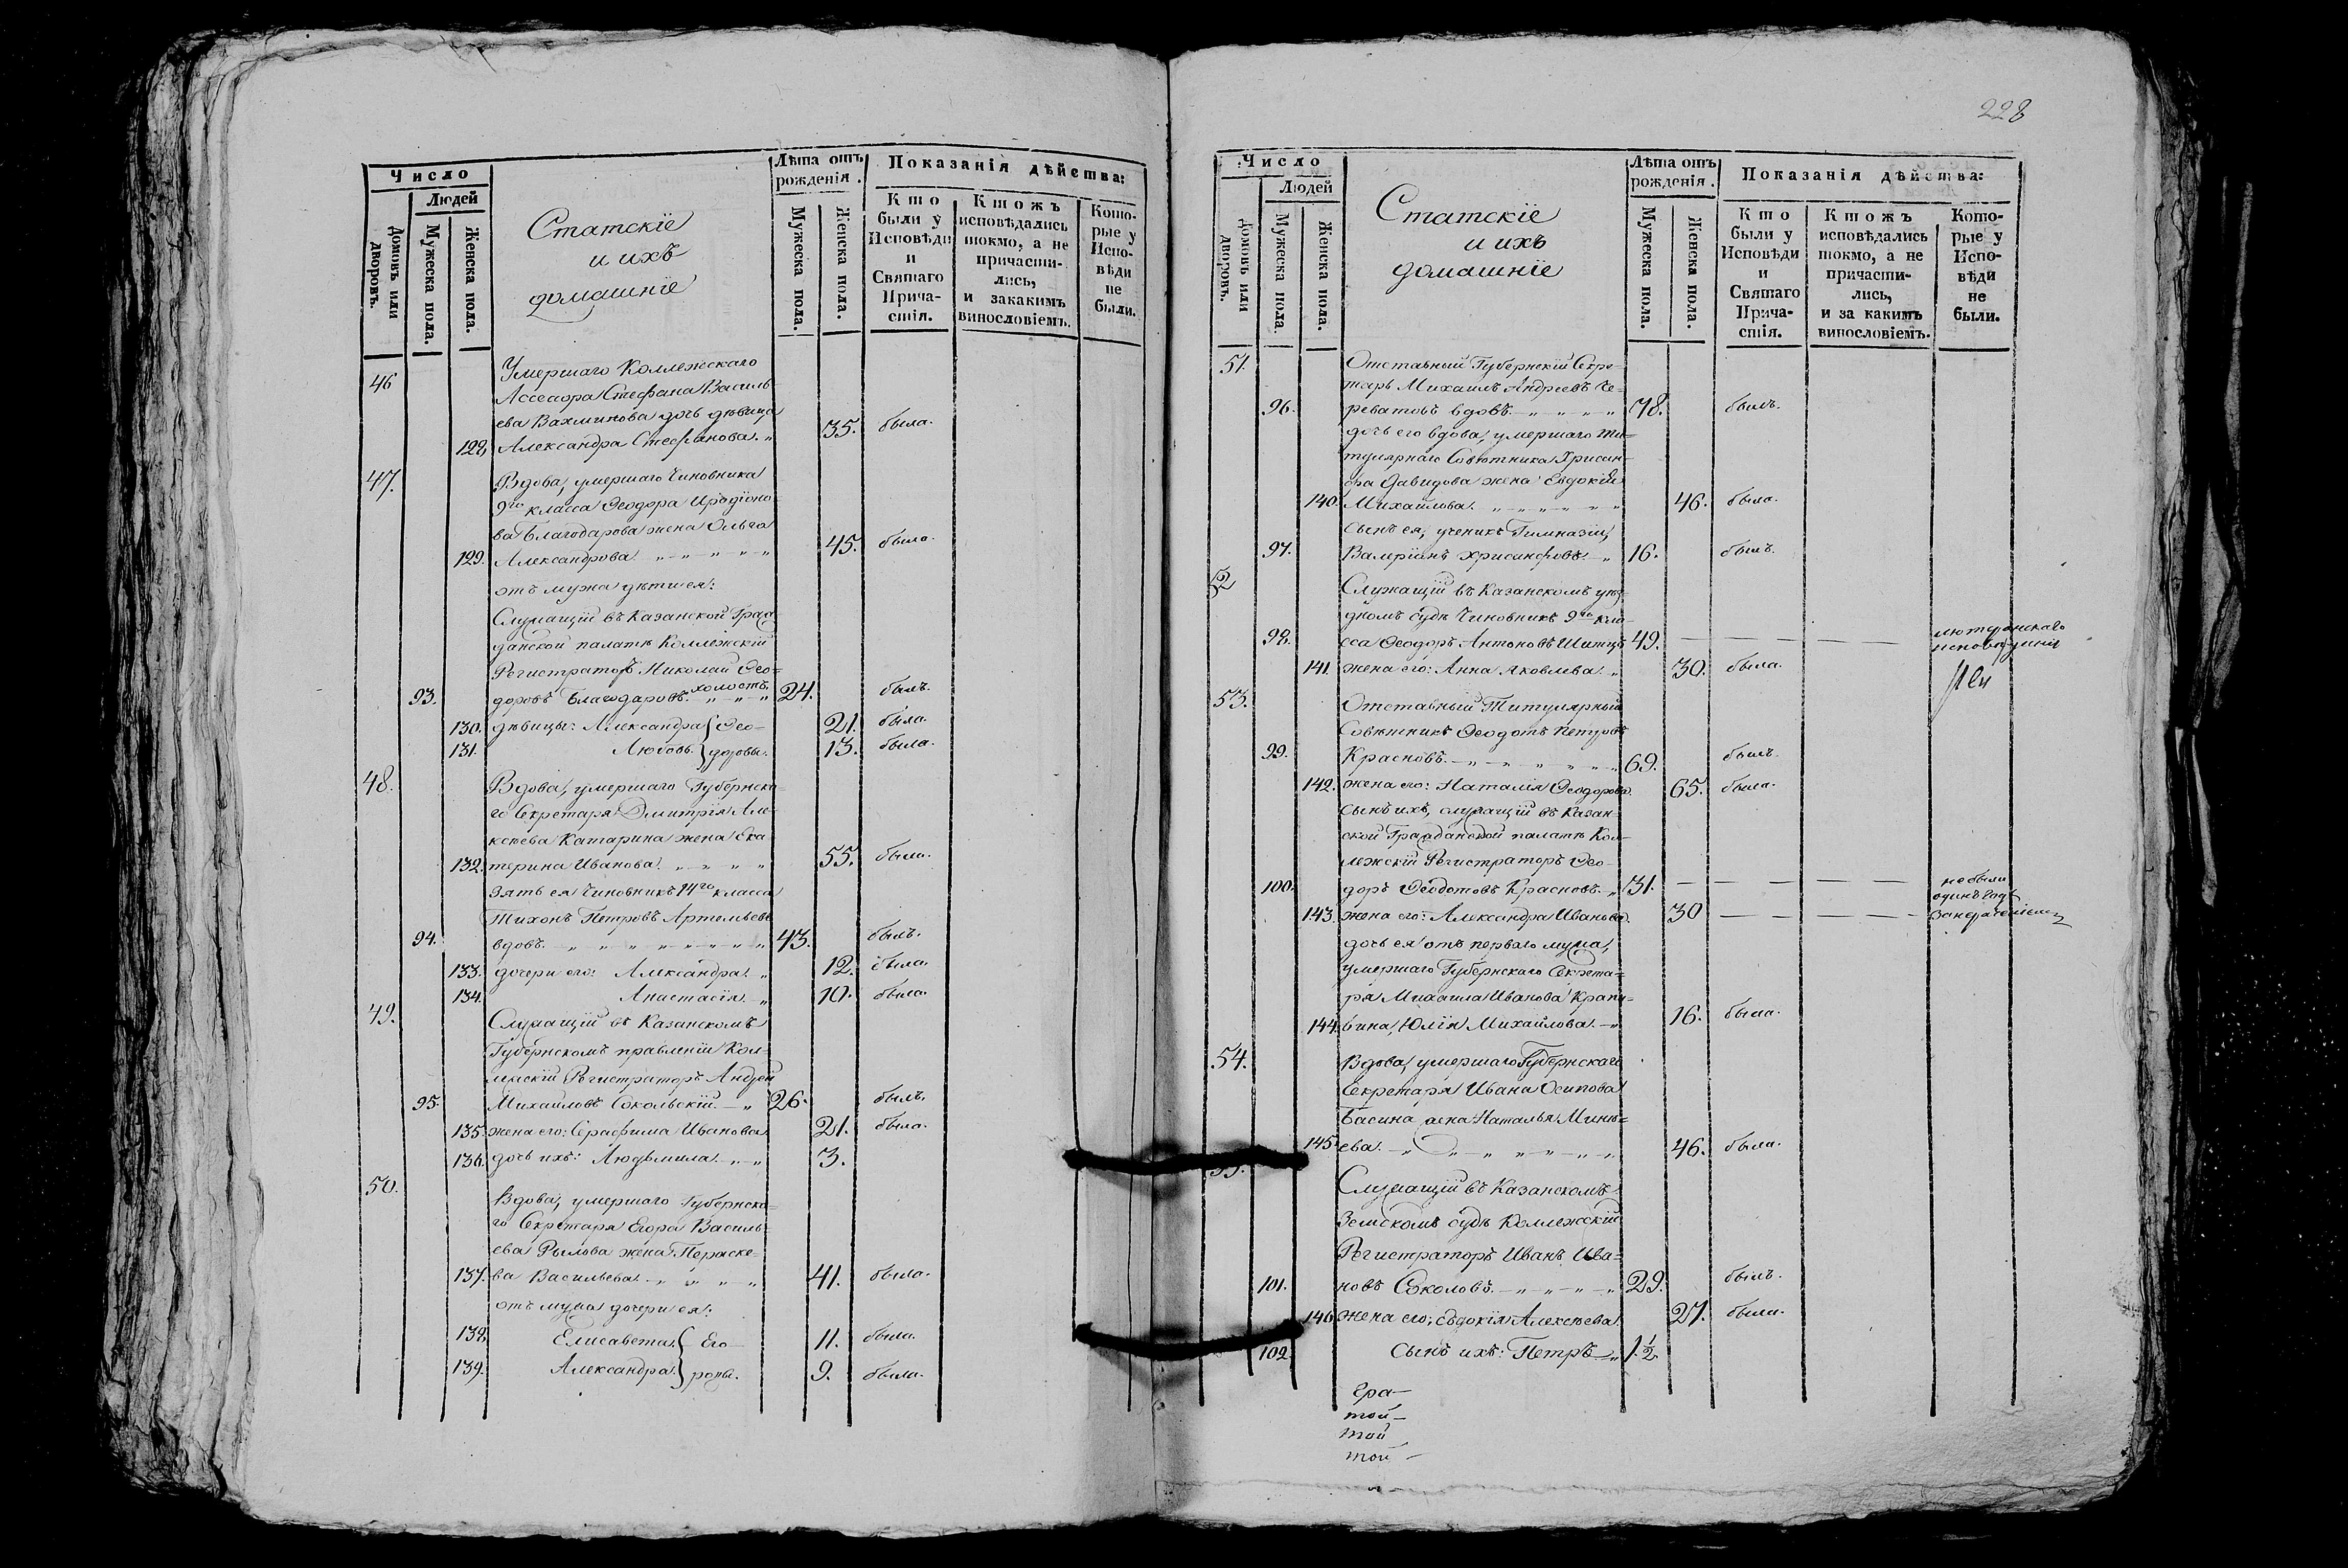 228
Число
Людей
Домовъ или дворовъ.
Мужеска пола.
Женска пола.
Статскіе
и ихъ
домашніе
Лѣта отъ рожденія.
Мужеска пола.
Женска пола.
Показанія дѣйства:
Кто были у Исповѣди и Святаго Причастія.
Ктожъ исповѣдались токмо, а не причастились, и закакимъ винословіемъ.
Которые у Исповѣди не были.
46 Умершаго Коллежскаго
Ассесора Стефана Василь
ева Вахминова дочь дѣвица
128. Александра Стефанова. „ 35. была.
47. Вдова, умершаго Чиновника
9го класса Ѳеодора Иродіоно
ва Благодарова жена Ольга
129. Александрова. „ „ „ „ „ 45. была.
отъ мужа дѣти ея:
Служащій въ Казанской Граж
данской палатѣ Коллежскій
Регистраторъ Николай Ѳео=
93. доровъ Благодаровъ. холостъ. „ „ „ 24. былъ.
130. дѣвицы: Александра { Ѳео- 21. была.
131. Любовь. } доровы. 13. была.
48. Вдова, умершаго Губернска-
го Секретаря Дмитрія Але-
ксѣева Катарина жена Ека
132. терина Иванова. „ „ „ „ „ 55. была.
Зять ея Чиновникъ 14го класса
Тихонъ Петровъ Артемьевъ
94. вдовъ. „ „ „ „ „ „ „ „ 43. былъ.
133. дочери его: Александра. „ 12. была.
134. Анастасія. „ 10. была.
49. Служащій въ Казанскомъ
Губернскомъ правленіи Кол-
лежскій Регистраторъ Андрей
95. Михайловъ Сокольскій. — „ 26. былъ.
135. жена его: Серафима Иванова. 21. была.
136. дочь ихъ: Людьмила. „ „ 3.
50. Вдова, умершаго Губернска=
го Секретаря Егора Василь-
ева Рылова жена Параске=
137. ва Васильева. „ „ „ „ 41. была.
отъ мужа дочери ея:
138. Елисавета. { Его- 11. была.
139. Александра. } ровы. 9. была.
Число
Людей
Домовъ или дворовъ.
Мужеска пола.
Женска пола.
Статскіе
и ихъ
домашніе
Лѣта отъ рожденія.
Мужеска пола.
Женска пола.
Показанія дѣйства:
Кто были у Исповѣди и Святаго Причастія.
Ктожъ исповѣдались токмо, а не причастились, и за какимъ винословіемъ.
Которые у Исповѣди не были.
51. Отставный Губернскій Секре-
тарь Михаилъ Андреевъ Че=
96. реватовъ вдовъ. „ „ „ „ 78. былъ.
дочь его вдова, умершаго Ти=
тулярнаго Совѣтника Хрисан-
фа Давидова жена Евдокія
140. Михайлова. „ „ „ „ „ 46. была.
Сынъ ея, ученикъ Гимназіи,
97. Валеріанъ Хрисанфовъ. — „ 16. былъ.
52 Служащій въ Казанскомъ уѣз-
дномъ судѣ Чиновникъ 9го кла-
98. сса Ѳеодоръ Антоновъ 49. — — — — лютеранскаго
исповѣданія
141. жена его: Анна Яковлева. „ 30. была.
53. Отставный Титулярный
Совѣтникъ Ѳеодотъ Петровъ
99. Красновъ. — „ „ „ „ „ 69. былъ.
142. жена его: Наталія Ѳеодорова. 65. была.
Сынъ ихъ, служащій въ Казан-
ской Гражданской палатѣ Кол-
лежскій Регистраторъ Ѳео-
100. доръ Ѳеодотовъ Красновъ. „ 31. — — — — не были
одинъ годъ
143. жена его: Александра Иванова. 30 — — — —
дочь ея отъ перваго мужа,
умершаго Губернскаго Секрета=
ря Михаила Иванова Крапи-
144. вина, Юлія Михайлова. — „ 16. была.
54. Вдова, умершаго Губернскаго
Секретаря Ивана Осипова
Басина жена Наталья Минѣ=
145. ева. — „ „ „ „ „ „ 46. была.
55. Служащій въ Казанскомъ
Земскомъ судѣ Коллежскій
Регистраторъ Иванъ Ива=
101. новъ Соколовъ. — „ „ „ „ 29. былъ.
146. жена его: Евдокія Алексѣева. 27. была.
102. Сынъ ихъ: Петръ „ 1½.
той —
той
той —